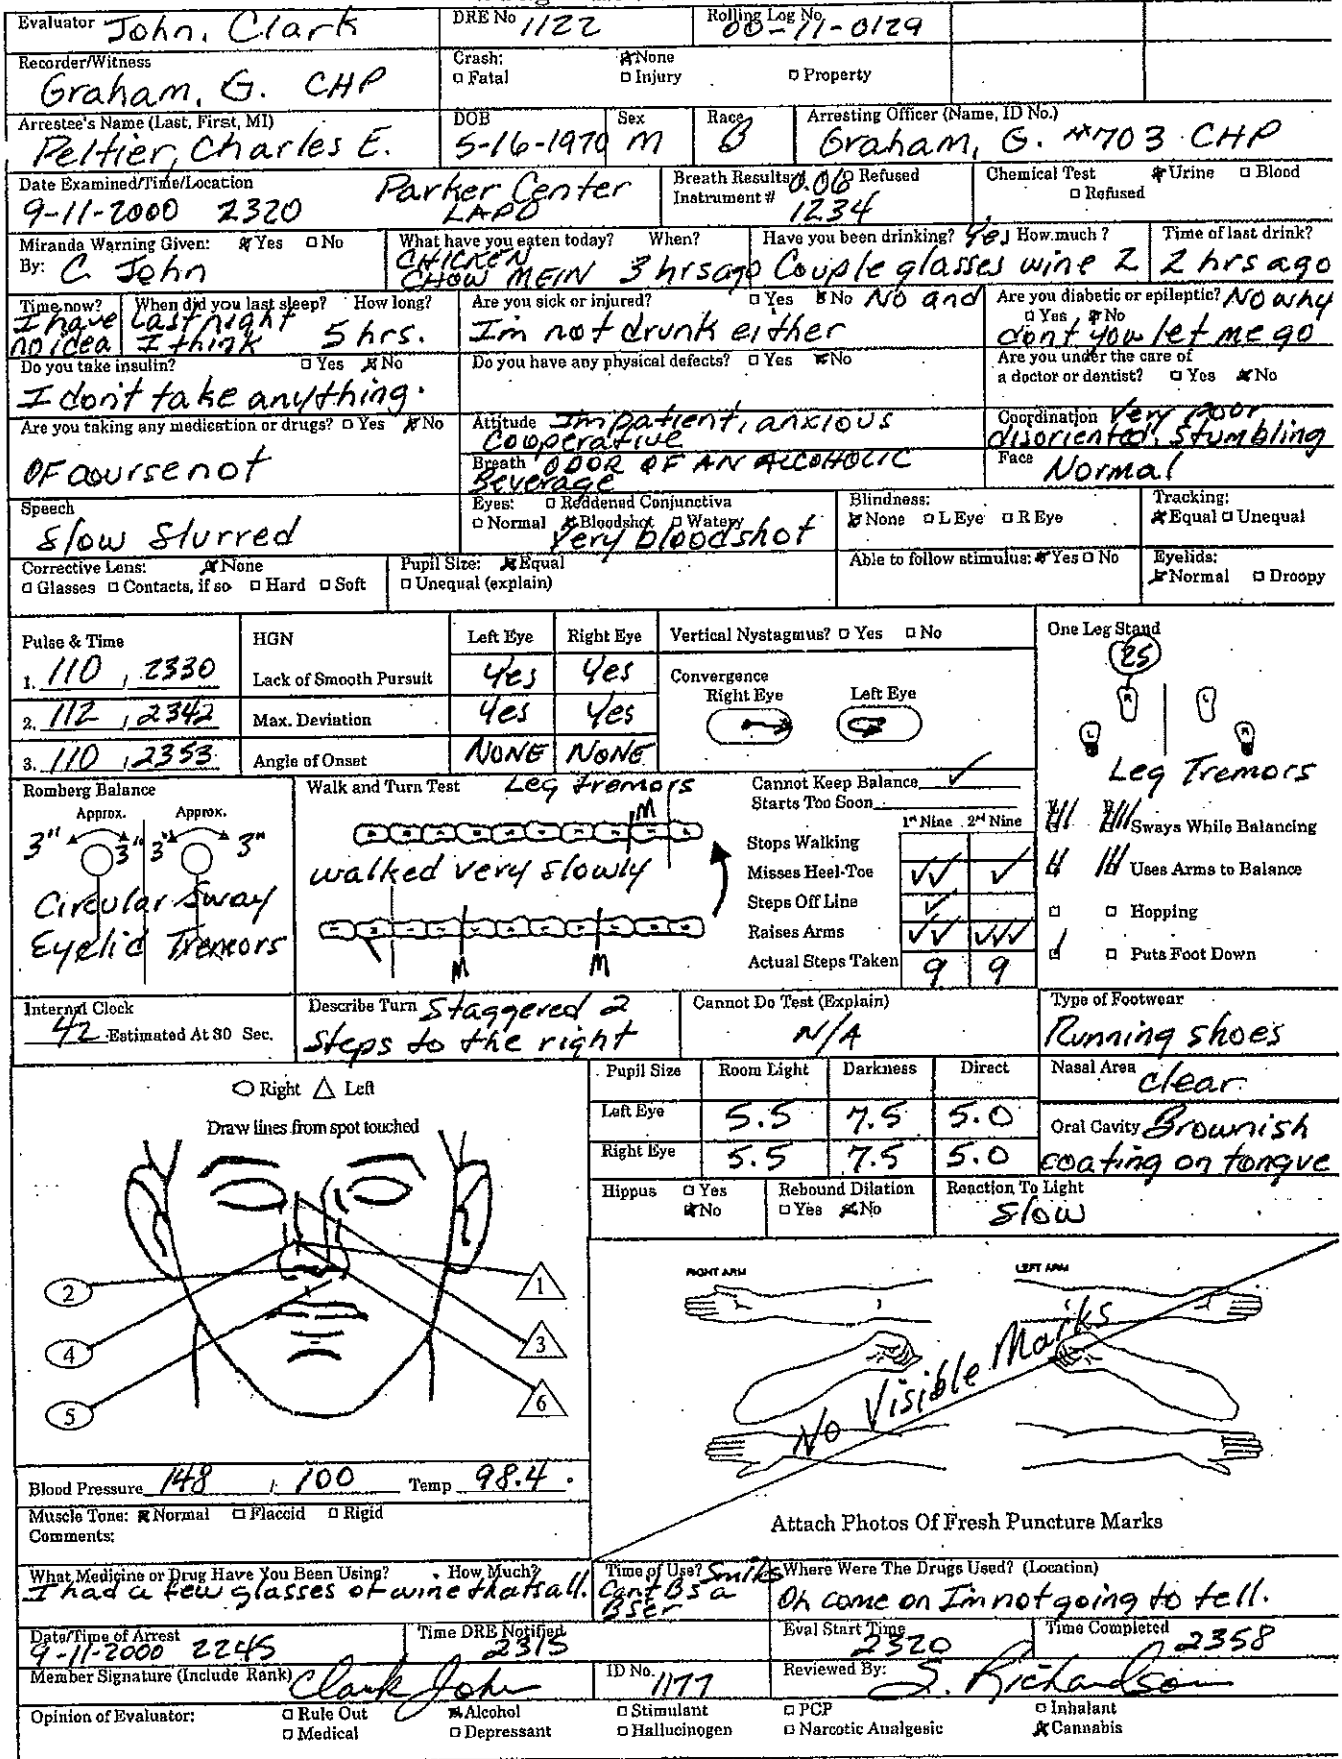 Evaluator John, Clark
DRE No 1122
Rolling Log No. 00-11-0129
Recorder/Witness
Graham, G. CHP
Crash: None
Fatal Injury Property
Arrestee's Name (Last, First, MI)
Peltier, Charles E.
DOB
5-16-1970
Sex
M
Race
B
Arresting Officer (Name, ID No.)
Graham, G. #703 CHP
Date Examined/Time/Location
9-11-2000 2320 Parker Center
LAPD
Breath Results: 0.06 Refused
Instrument # 1234
Chemical Test Urine Blood
Refused
Miranda Warning Given: Yes No
By: C. John
What have you eaten today? When?
CHICKEN
CHOW MEIN 3 hrs ago
Have you been drinking? Yes How much?
Couple glasses wine 2
Time of last drink?
2 hrs ago
Time now?
I have
no idea
When did you last sleep? How long?
Last night
I think 5 hrs.
Are you sick or injured? Yes No No and
I'm not drunk either
Are you diabetic or epileptic? No why
Yes No
dont you let me go
Do you take insulin? Yes No
I don't take anything.
Do you have any physical defects? Yes No
Are you under the care of
a doctor or dentist? Yes No
Are you taking any medication or drugs? Yes No
OF course not
Attitude Impatient, anxious
Cooperative
Coordination Very poor
disoriented, stumbling
Breath ODOR OF AN ALCOHOLIC
Beverage
Face
Normal
Speech
Slow Slurred
Eyes: Reddened Conjunctiva
Normal Bloodshot Watery
Very bloodshot
Blindness:
None L Eye R Eye
Tracking:
Equal Unequal
Corrective Lens: None
Glasses Contacts, if so Hard Soft
Pupil Size: Equal
Unequal (explain)
Able to follow stimulus: Yes No
Eyelids:
Normal Droopy
Pulse & Time
1. 110 , 2330
2. 112 , 2342
3. 110 , 2353
HGN Left Eye Right Eye
Lack of Smooth Pursuit Yes Yes
Max. Deviation Yes Yes
Angle of Onset NONE NONE
Vertical Nystagmus? Yes No
Convergence
Right Eye Left Eye
One Leg Stand
25
R L
L R
Leg Tremors
Sways While Balancing
Uses Arms to Balance
Hopping
Puts Foot Down
Romberg Balance
Approx. Approx.
3" 3" 3" 3"
Circular Sway
Eyelid Tremors
Walk and Turn Test Leg tremors
M
walked very slowly
M M
Cannot Keep Balance
Starts Too Soon
1st Nine 2nd Nine
Stops Walking
Misses Heel-Toe
Steps Off Line
Raises Arms
Actual Steps Taken 9 9
Internal Clock
42 Estimated At 30 Sec.
Describe Turn Staggered 2
steps to the right
Cannot Do Test (Explain)
N/A
Type of Footwear
Running shoes
Right Left
Draw lines from spot touched
2 1
4 3
5 6
Pupil Size Room Light Darkness Direct
Left Eye 5.5 7.5 5.0
Right Eye 5.5 7.5 5.0
Nasal Area clear
Oral Cavity Brownish
coating on tongue
Hippus Yes
No
Rebound Dilation
Yes No
Reaction To Light
Slow
RIGHT ARM LEFT ARM
No Visible Marks
Attach Photos Of Fresh Puncture Marks
Blood Pressure 148 / 100 Temp 98.4
Muscle Tone: Normal Flaccid Rigid
Comments:
What Medicine or Drug Have You Been Using? How Much?
I had a few glasses of wine thats all.
Time of Use? Smiles
Cant Bs a
Bser
Where Were The Drugs Used? (Location)
Oh come on I'm not going to tell.
Date/Time of Arrest
9-11-2000 2245
Time DRE Notified
2315
Eval Start Time
2320
Time Completed
2358
Member Signature (Include Rank) Clark John
ID No. 1177
Reviewed By: S. Richardson
Opinion of Evaluator: Rule Out Alcohol Stimulant PCP Inhalant
Medical Depressant Hallucinogen Narcotic Analgesic Cannabis